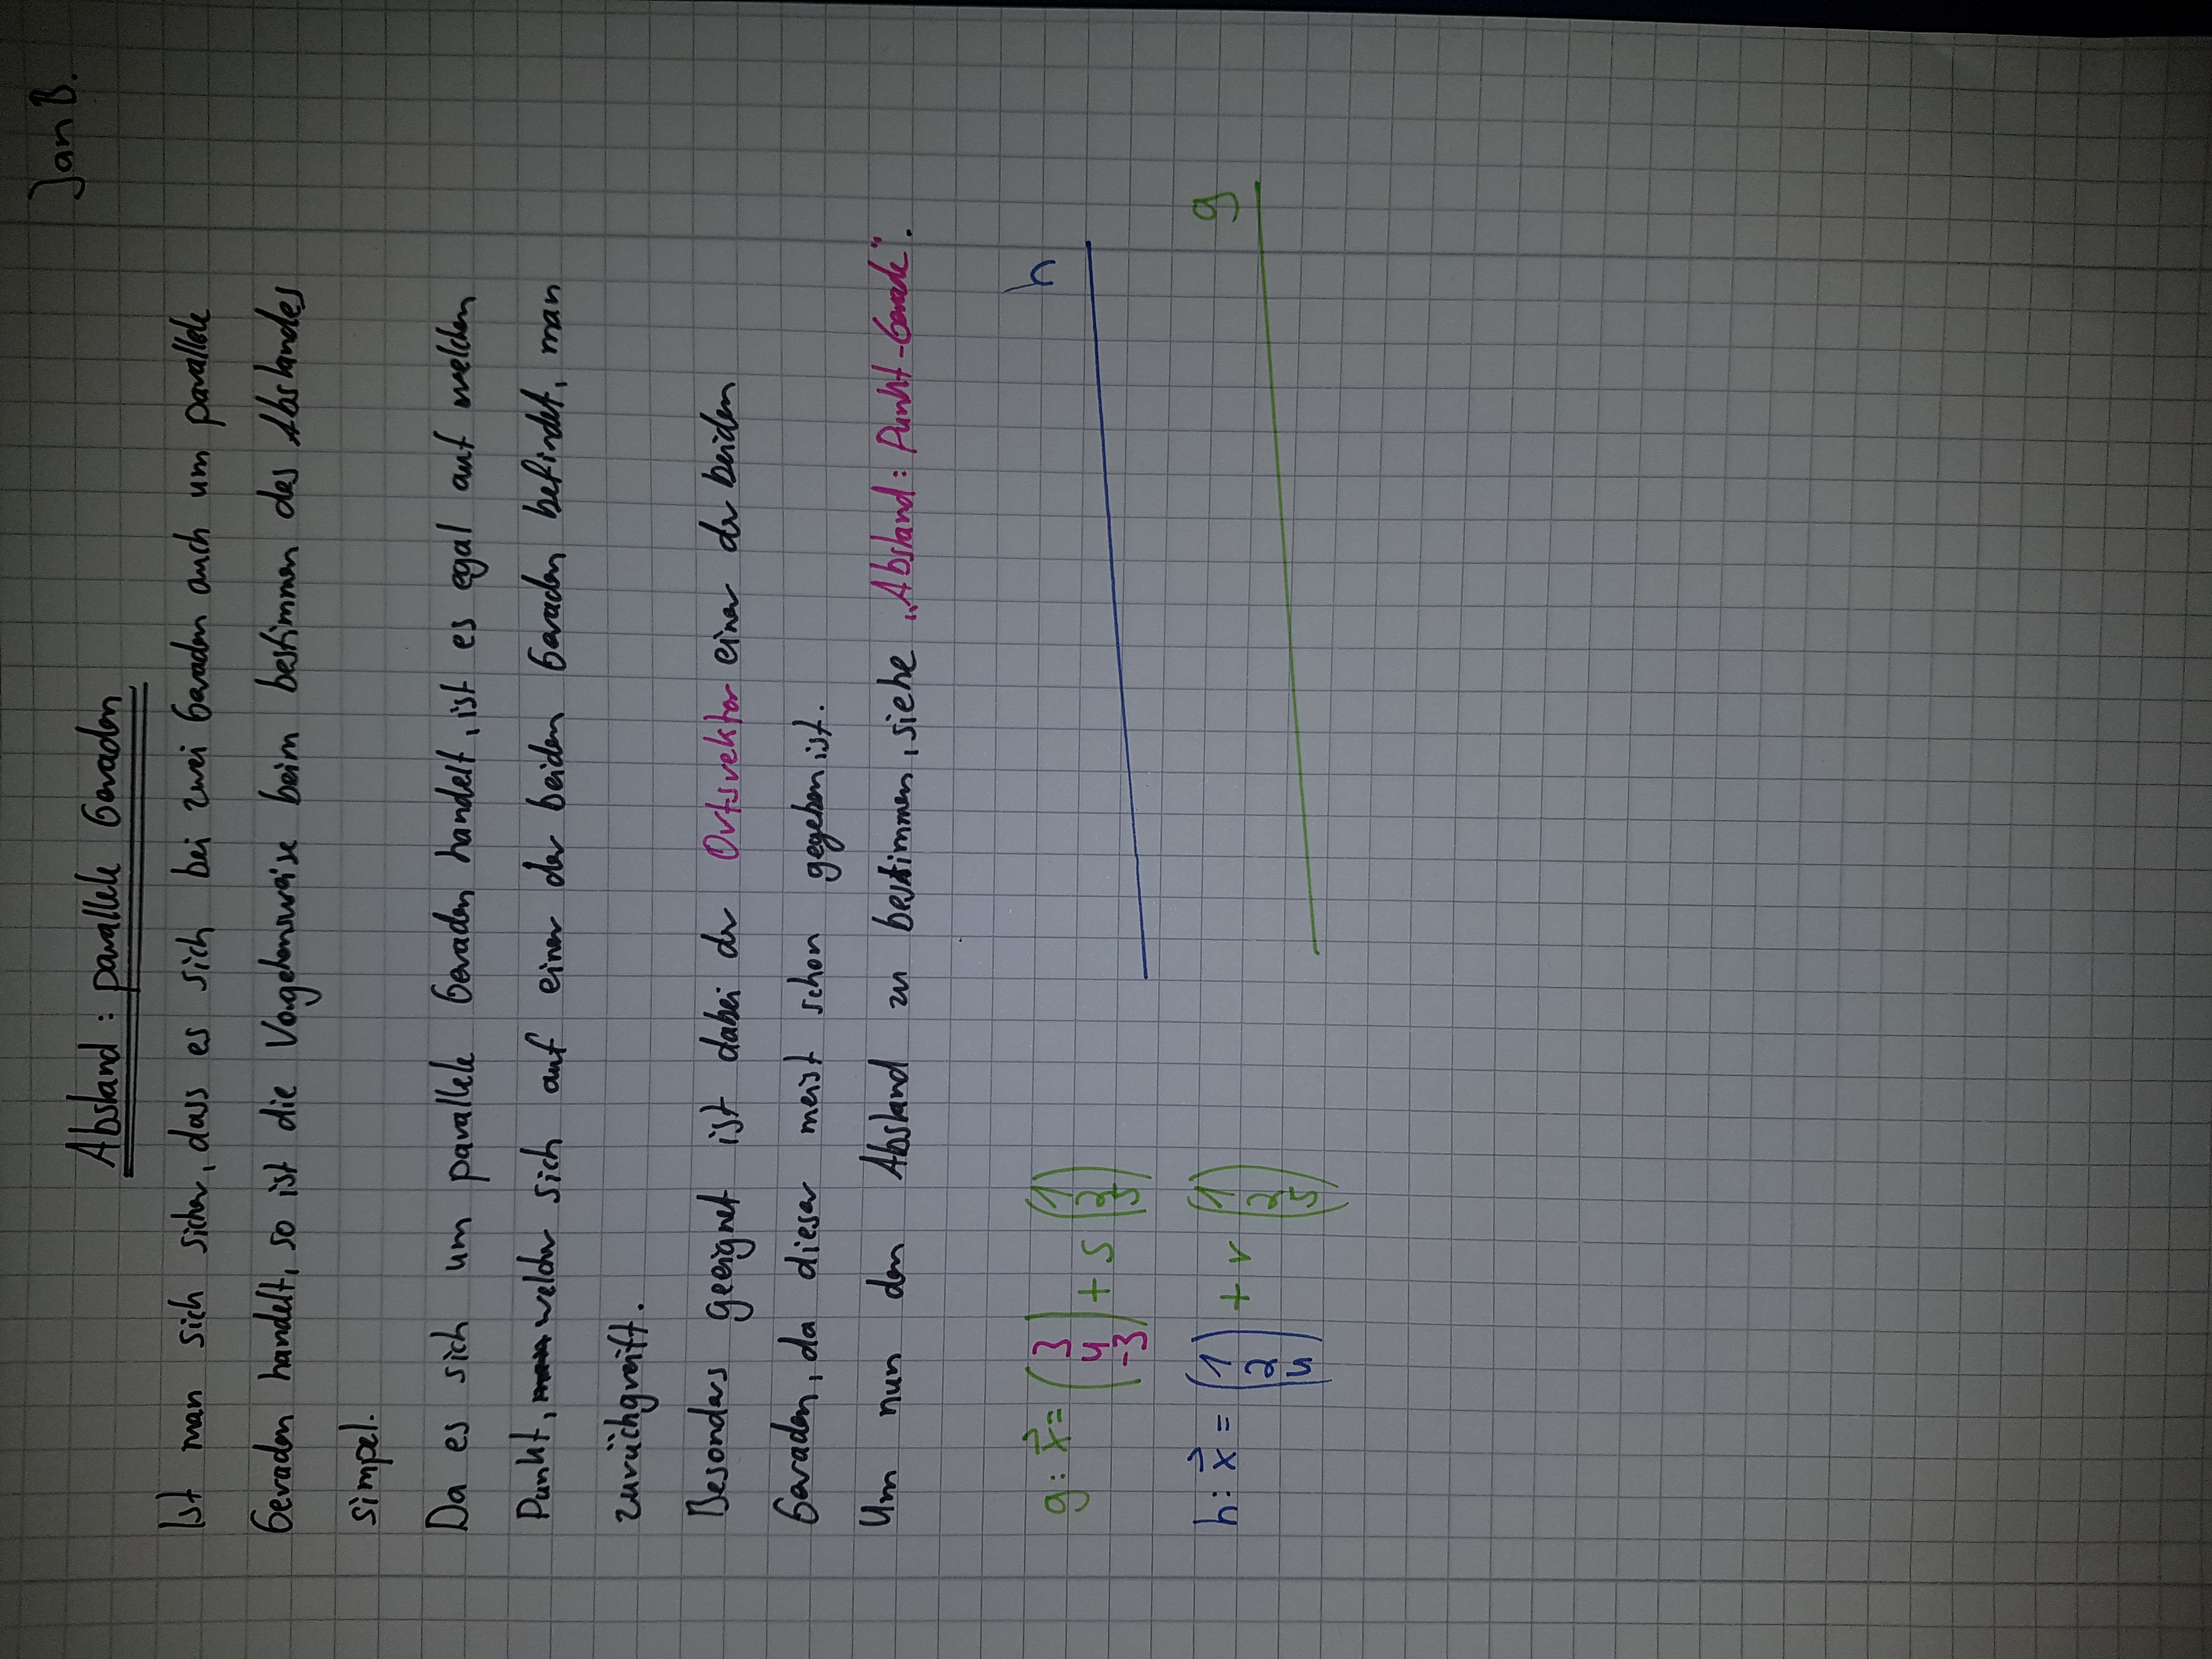 Jan B.
Abstand: parallele Geraden
Ist man sich sicher, dass es sich bei zwei Geraden auch um parallele
Geraden handelt, so ist die Vorgehensweise beim bestimmen des Abstandes
simpel.
Da es sich um parallele Geraden handelt, ist es egal auf welchen
Punkt, welcher sich auf einer der beiden Geraden befindet, man
zurückgreift.
Besonders geeignet ist dabei der Ortsvektor einer der beiden
Geraden, da dieser meist schon gegeben ist.
Um nun den Abstand zu bestimmen, siehe „Abstand: Punkt-Gerade".
h
g: x⃗ = (3 4 -3) + s (1 2 5)
g
h: x⃗ = (1 2 4) + r (1 2 5)